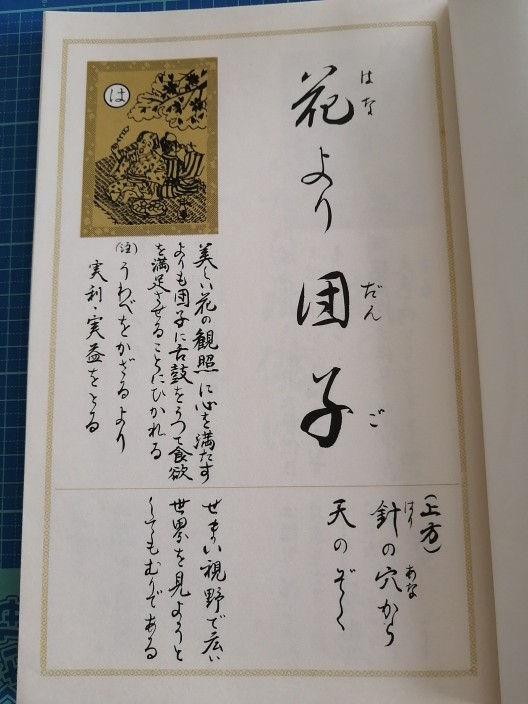 はな だん ご
花より団子
は
美しい花の観照に心を満たす
よりも団子に舌鼓をうって食欲
を満足させることにひかれる
(注)うわべをかざるより
実利、実益をとる
(上方)
はり あな
針の穴から
天のぞく
せまい視野で広い
世界を見ようと
してもむりである